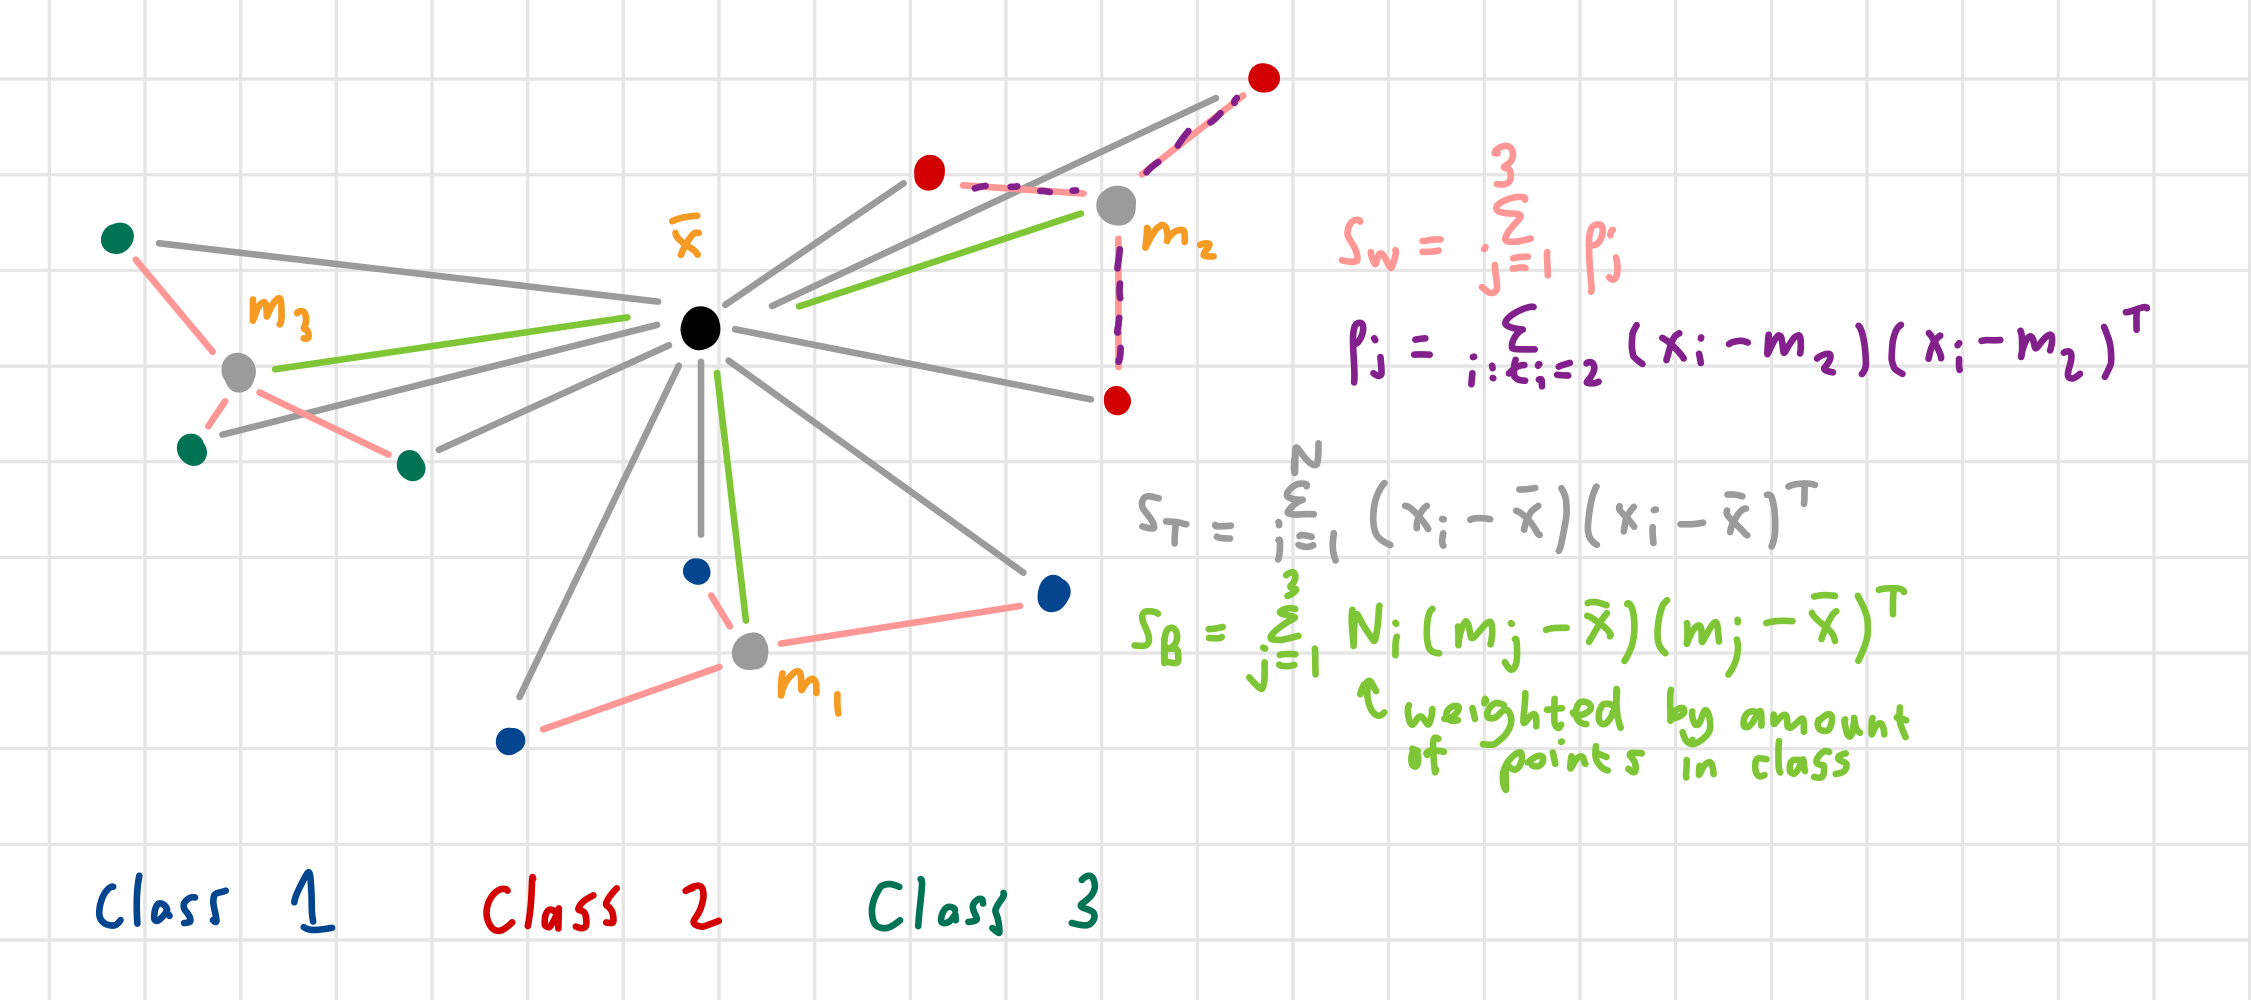 x̄
m₂
m₃
m₁
S_W = Σ_{j=1}^{3} P_j
P_j = Σ_{i:t_i=2} (x_i − m₂)(x_i − m₂)^T
S_T = Σ_{i=1}^{N} (x_i − x̄)(x_i − x̄)^T
S_B = Σ_{j=1}^{3} N_i (m_j − x̄)(m_j − x̄)^T
weighted by amount
of points in class
Class 1 Class 2 Class 3